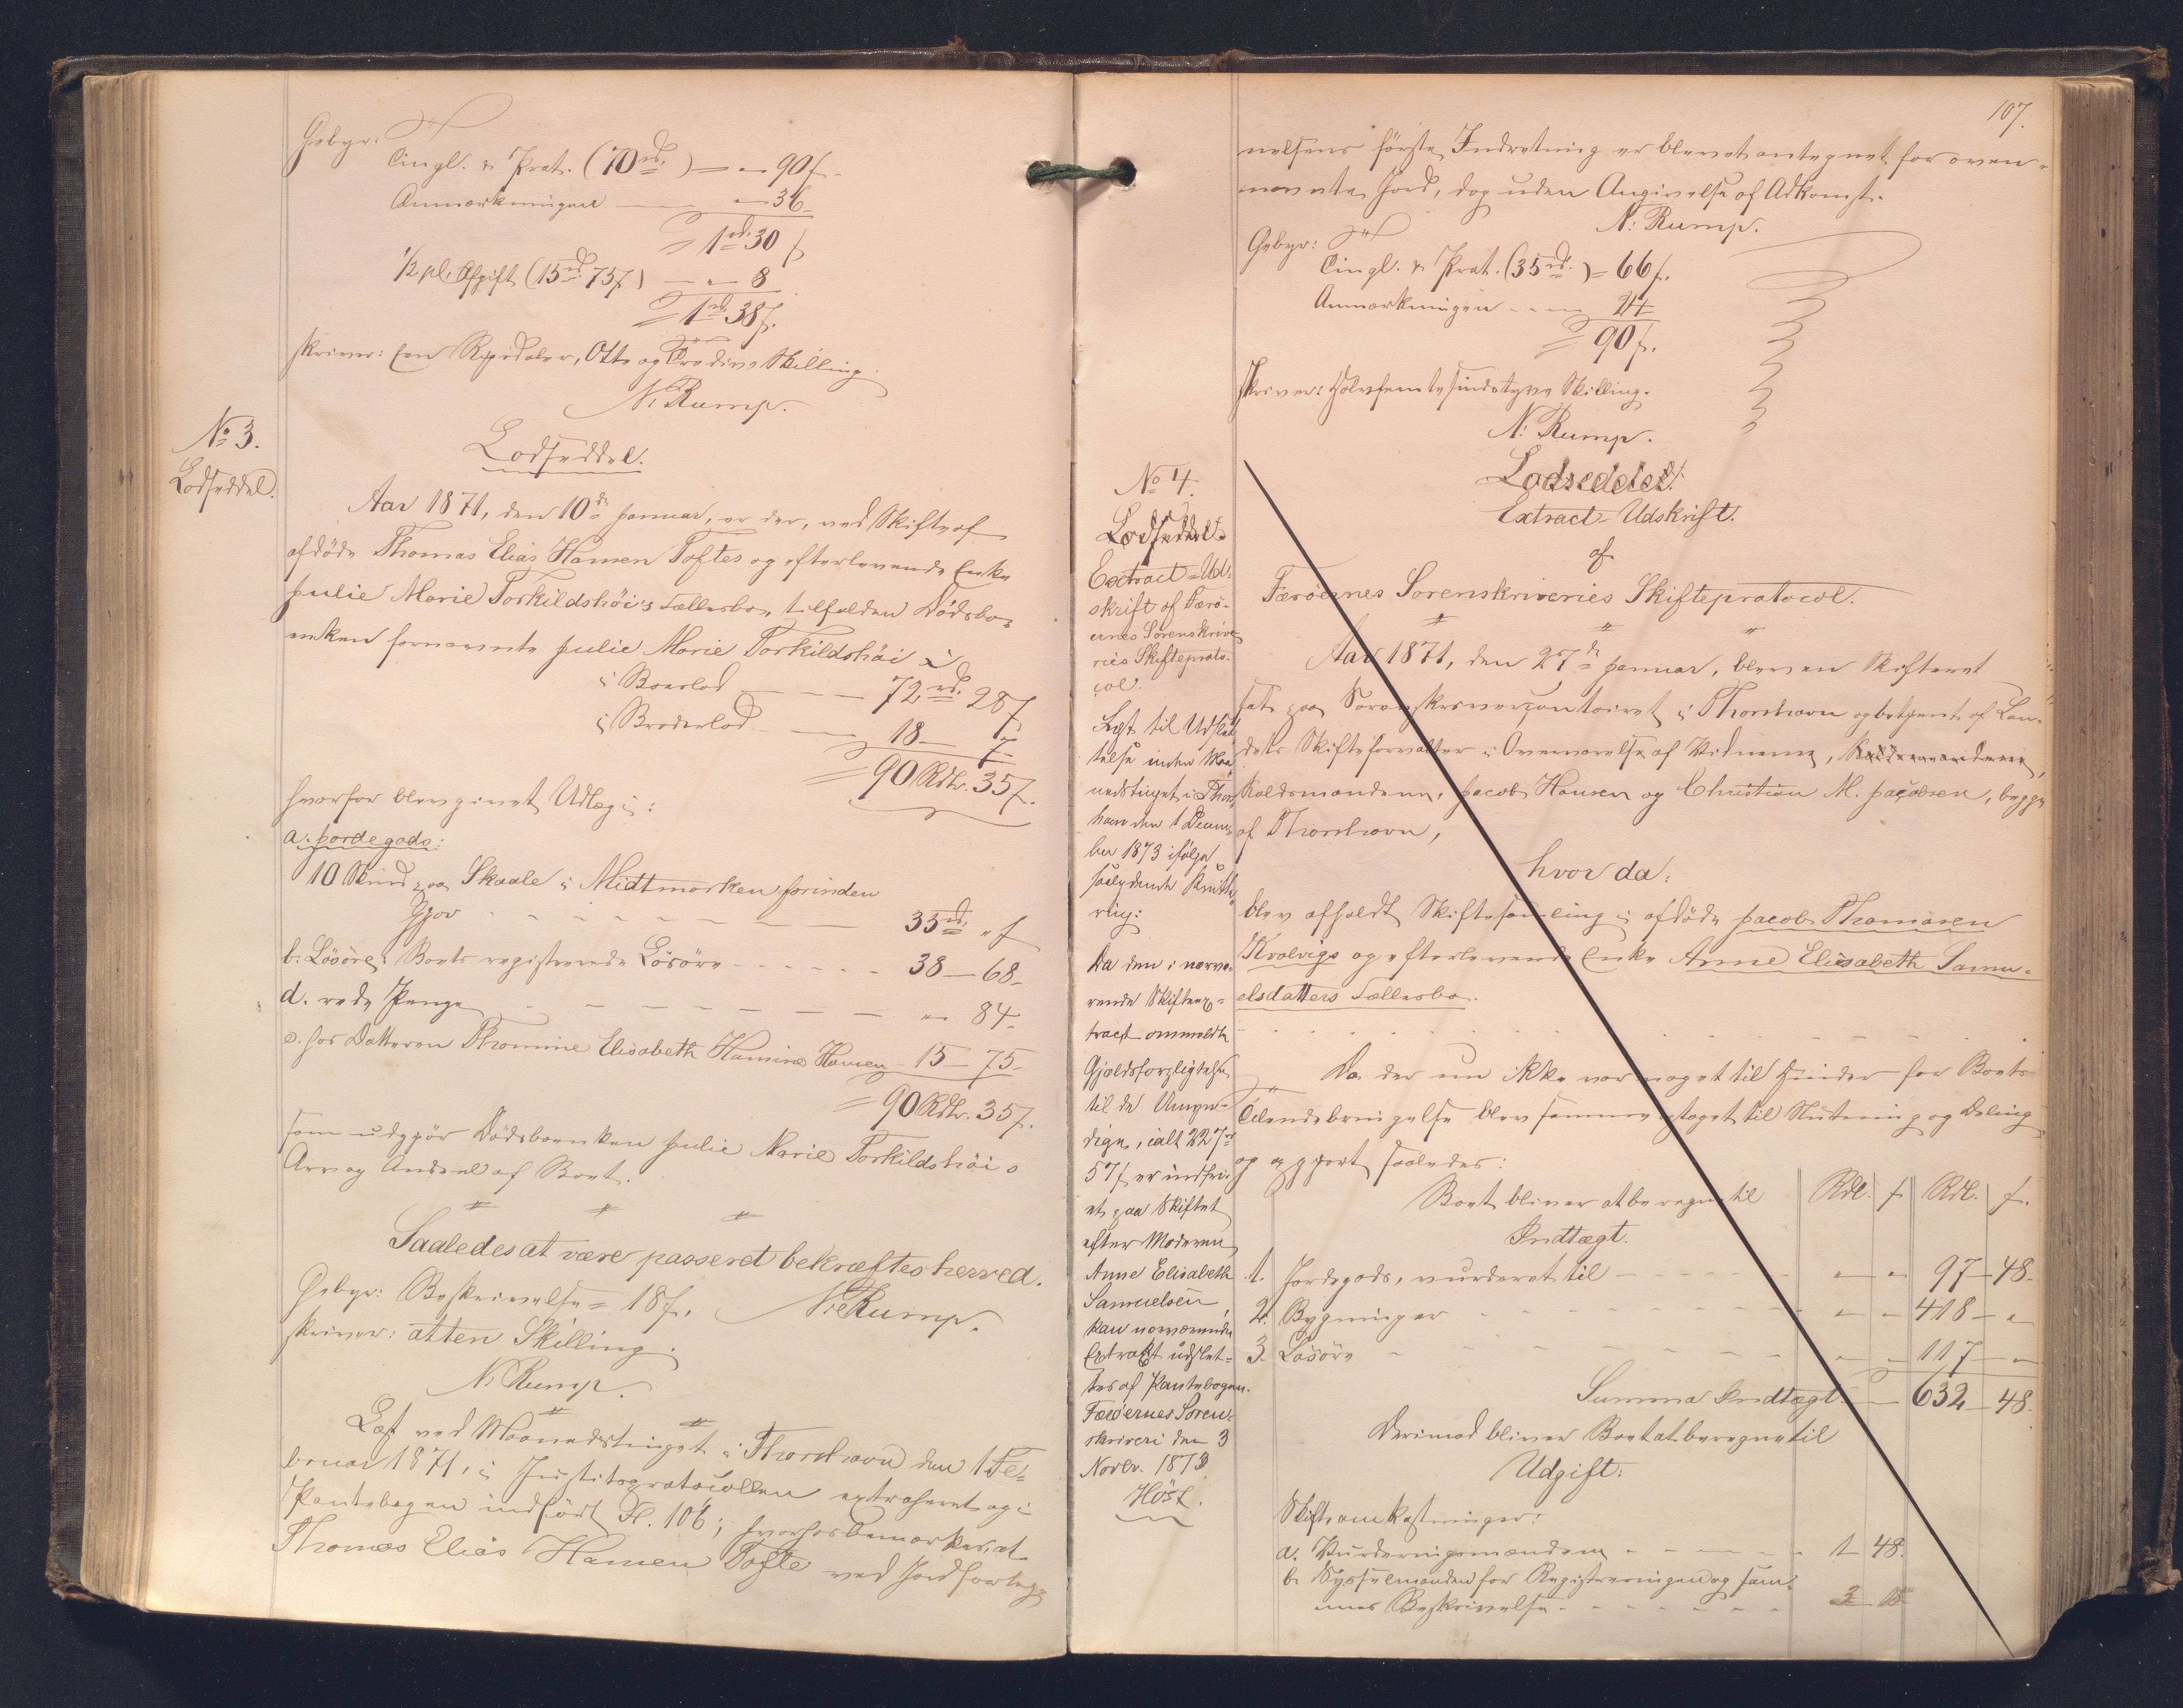 Gebyr:
Tingl. & Prot. (70rd.) = „ 90ſ.
Anmærkningen — „ 36
= 1rd. 30ſ
½ pCt. Afgift (15rd. 75ſ) — „ 8
= 1rd. 38ſ.
skriver: Een Rigsdaler, Otte og Tredive Skilling.
N. Rump.
No 3.
Lodseddel.
Lodseddel.
Aar 1871, den 10de Januar, er der, ved Skifte af
afdöde Thomas Elias Hansen Toftes og efterlevende Enke
Julie Marie Torkildshöi's Fællesbo, tilfalden Dödsbo-
enken fornævnte Julie Marie Torkildshöi
i Boeslod — 72rd. 28ſ
i Broderlod — 18 — 7
= 90 Rdlr. 35ſ.
hvorfor blev givet Udlæg i:
a. Jordegods:
10 Skind paa Skaale i Midtmarken forinden
Gjov — 35rd. „ſ
b. Lösöre: Boets registrerede Lösöre — 38 — 68
d. rede Penge — „ 84
c. hos Datteren Thomine Elisabeth Hansine Hansen 15 — 75
= 90 Rdlr. 35ſ.
som udgjör Dödsboenken Julie Marie Torkildshöis
Arv og Andeel af Boet.
Saaledes at være passeret bekræftes herved.
Gebyr: Beskrivelse = 18ſ. N. Rump.
skriver: atten Skilling.
N. Rump.
Læst ved Maanedstinget i Thorshavn den 1 Fe-
bruar 1871, i Justitsprotocollen extraheret og i
Pantebogen indfört Fl. 106; hvorhos bemærkes at
Thomas Elias Hansen Tofte ved Jordbog
107.
nelsens förste Indretning er blevet antegnet for oven-
nævnte Jord, dog uden Angivelse af Adkomst.
N. Rump.
Gebyr:
Tingl. & Prot. (35rd.) = 66ſ.
Anmærkningen — 24
= 90ſ.
skriver: Halvfemtesindstyve Skilling.
N. Rump.
No 4.
Lodseddel.
Extract-Ud-
skrift af Færö-
ernes Sorenskrive-
ries Skifteproto-
col.
Læst til Udslet-
telse inden Maa-
nedstinget i Thors-
havn den 1 Decem-
ber 1873 ifölge
saalydende
Da den i nærvæ-
rende Skifteex-
tract ommeldte
Gjældsforpligtelse
til de Umyn-
dige, ialt 227rd
57ſ er indfri-
et paa Skiftet
efter Moderen
Anne Elisabeth
Samuelsen,
kan nærværende
Extract udslet-
tes af Pantebogen.
Færöernes Soren-
skriveri den 3
Novbr. 1873
Höst.
Lodseddel.
Extract-Udskrift.
af
Færöernes Sorenskriveries Skifteprotocol.
Aar 1871, den 27de Januar, blev en Skifteret
sat paa Sorenskrivercontoiret i Thorshavn og betjent af Lan-
dets Skifteforvalter i Overværelse af Vidnerne,
Kaldsmændene, Jacob Hansen og Christian M. Jacobsen, begge
af Thorshavn,
hvor da:
blev afholdt Skiftesamling i afdöde Jacob Thomasen
Kvalvigs og efterlevende Enke Anne Elisabeth Samu-
elsdatters Fællesbo.
Da der nu ikke var noget til Hinder for Boets
Tilendebringelse blev samme optaget til Slutning og Deling
og opgjort saaledes:
Boet bliver at beregne til Rdl. ſ Rdl. ſ.
Indtægt.
1. Jordegods, vurderet til — „ „ 97 — 48
2. Bygninger — „ „ 418 — „
3. Lösöre — „ „ 117 — „
Summa Indtægt — 632 — 48
Derimod bliver Boet at beregne til
Udgift:
Skifteomkostninger:
a. Vurderingsmændene — 1 48
b. Sysselmanden for Registreringen og sam-
mes Beskrivelse — 3 15